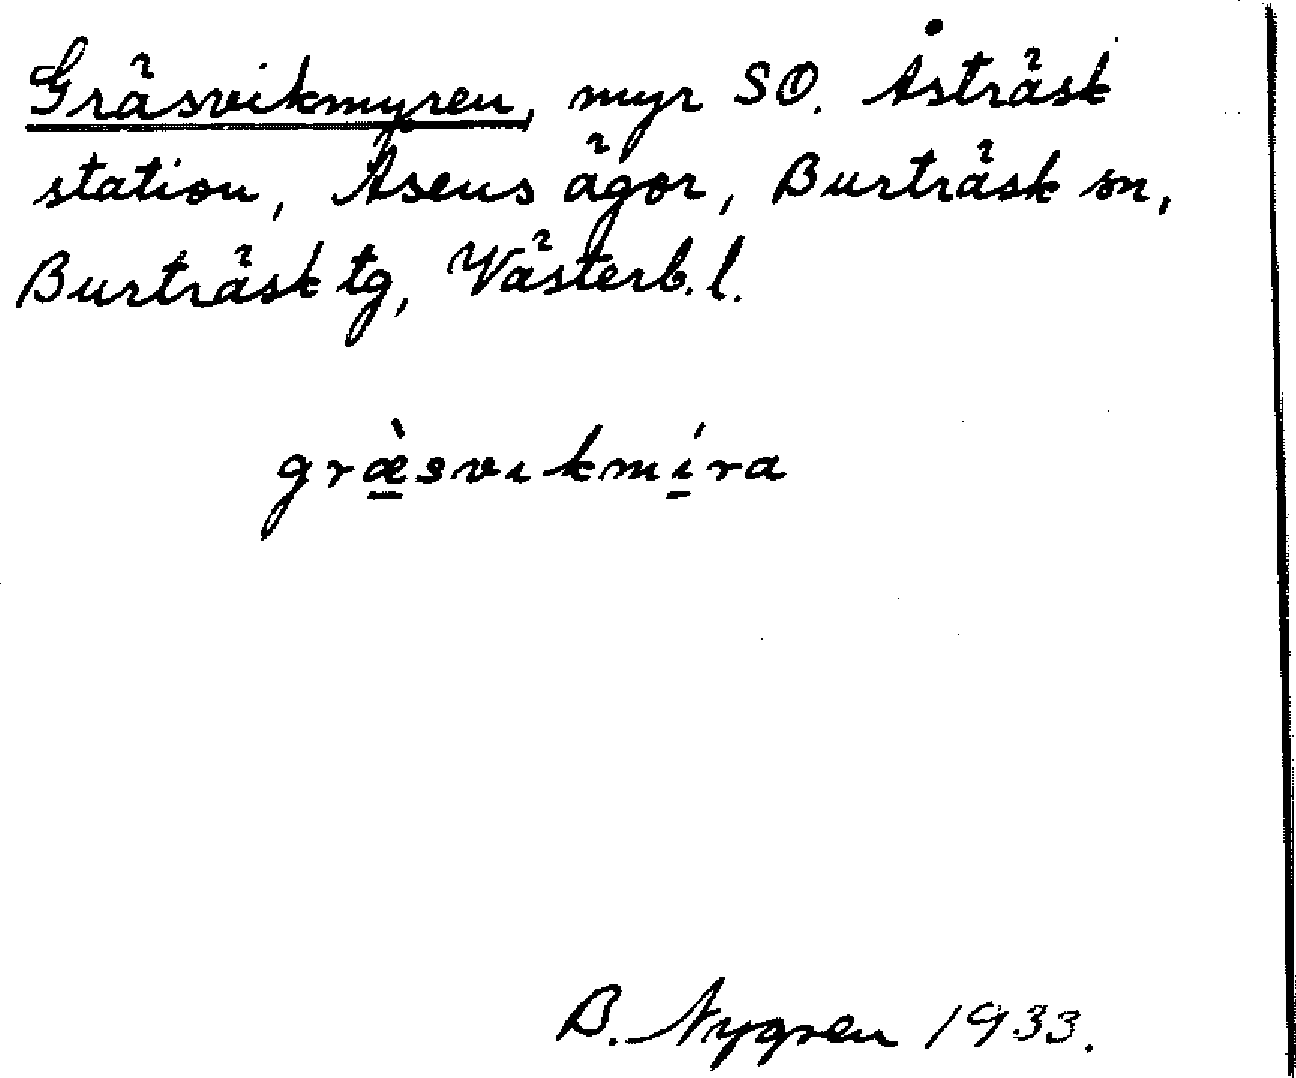 Gräsvikmyren, myr SO. Åsträsk
station, Åsens ägor, Burträsk sn,
Burträsk tg, Västerb. l.
græ̀svıkmíra
B. Nygren 1933.